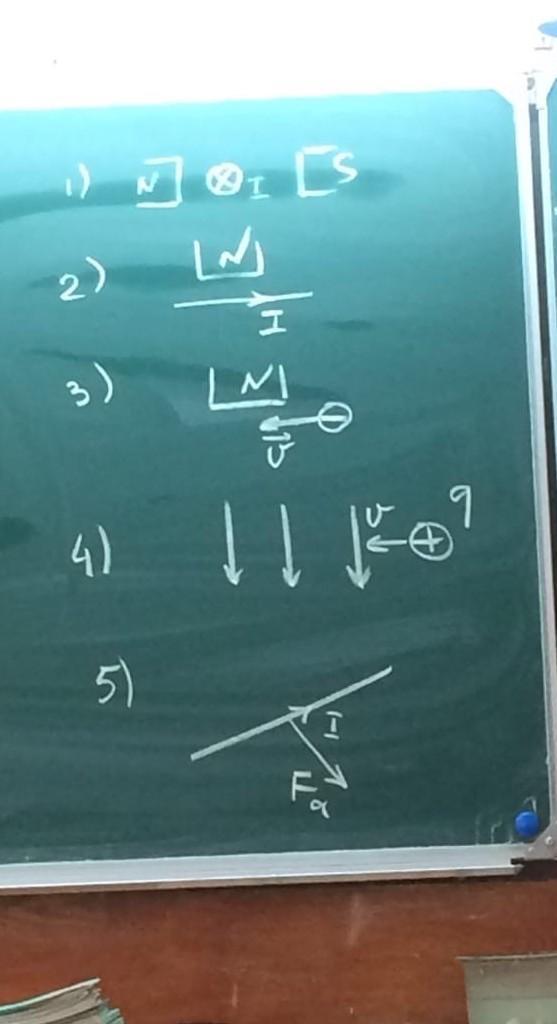 1) N ⊗ I S
2) N
I
3) N
⊖
v⃗
4) v ⊕ q
5)
I
Fa